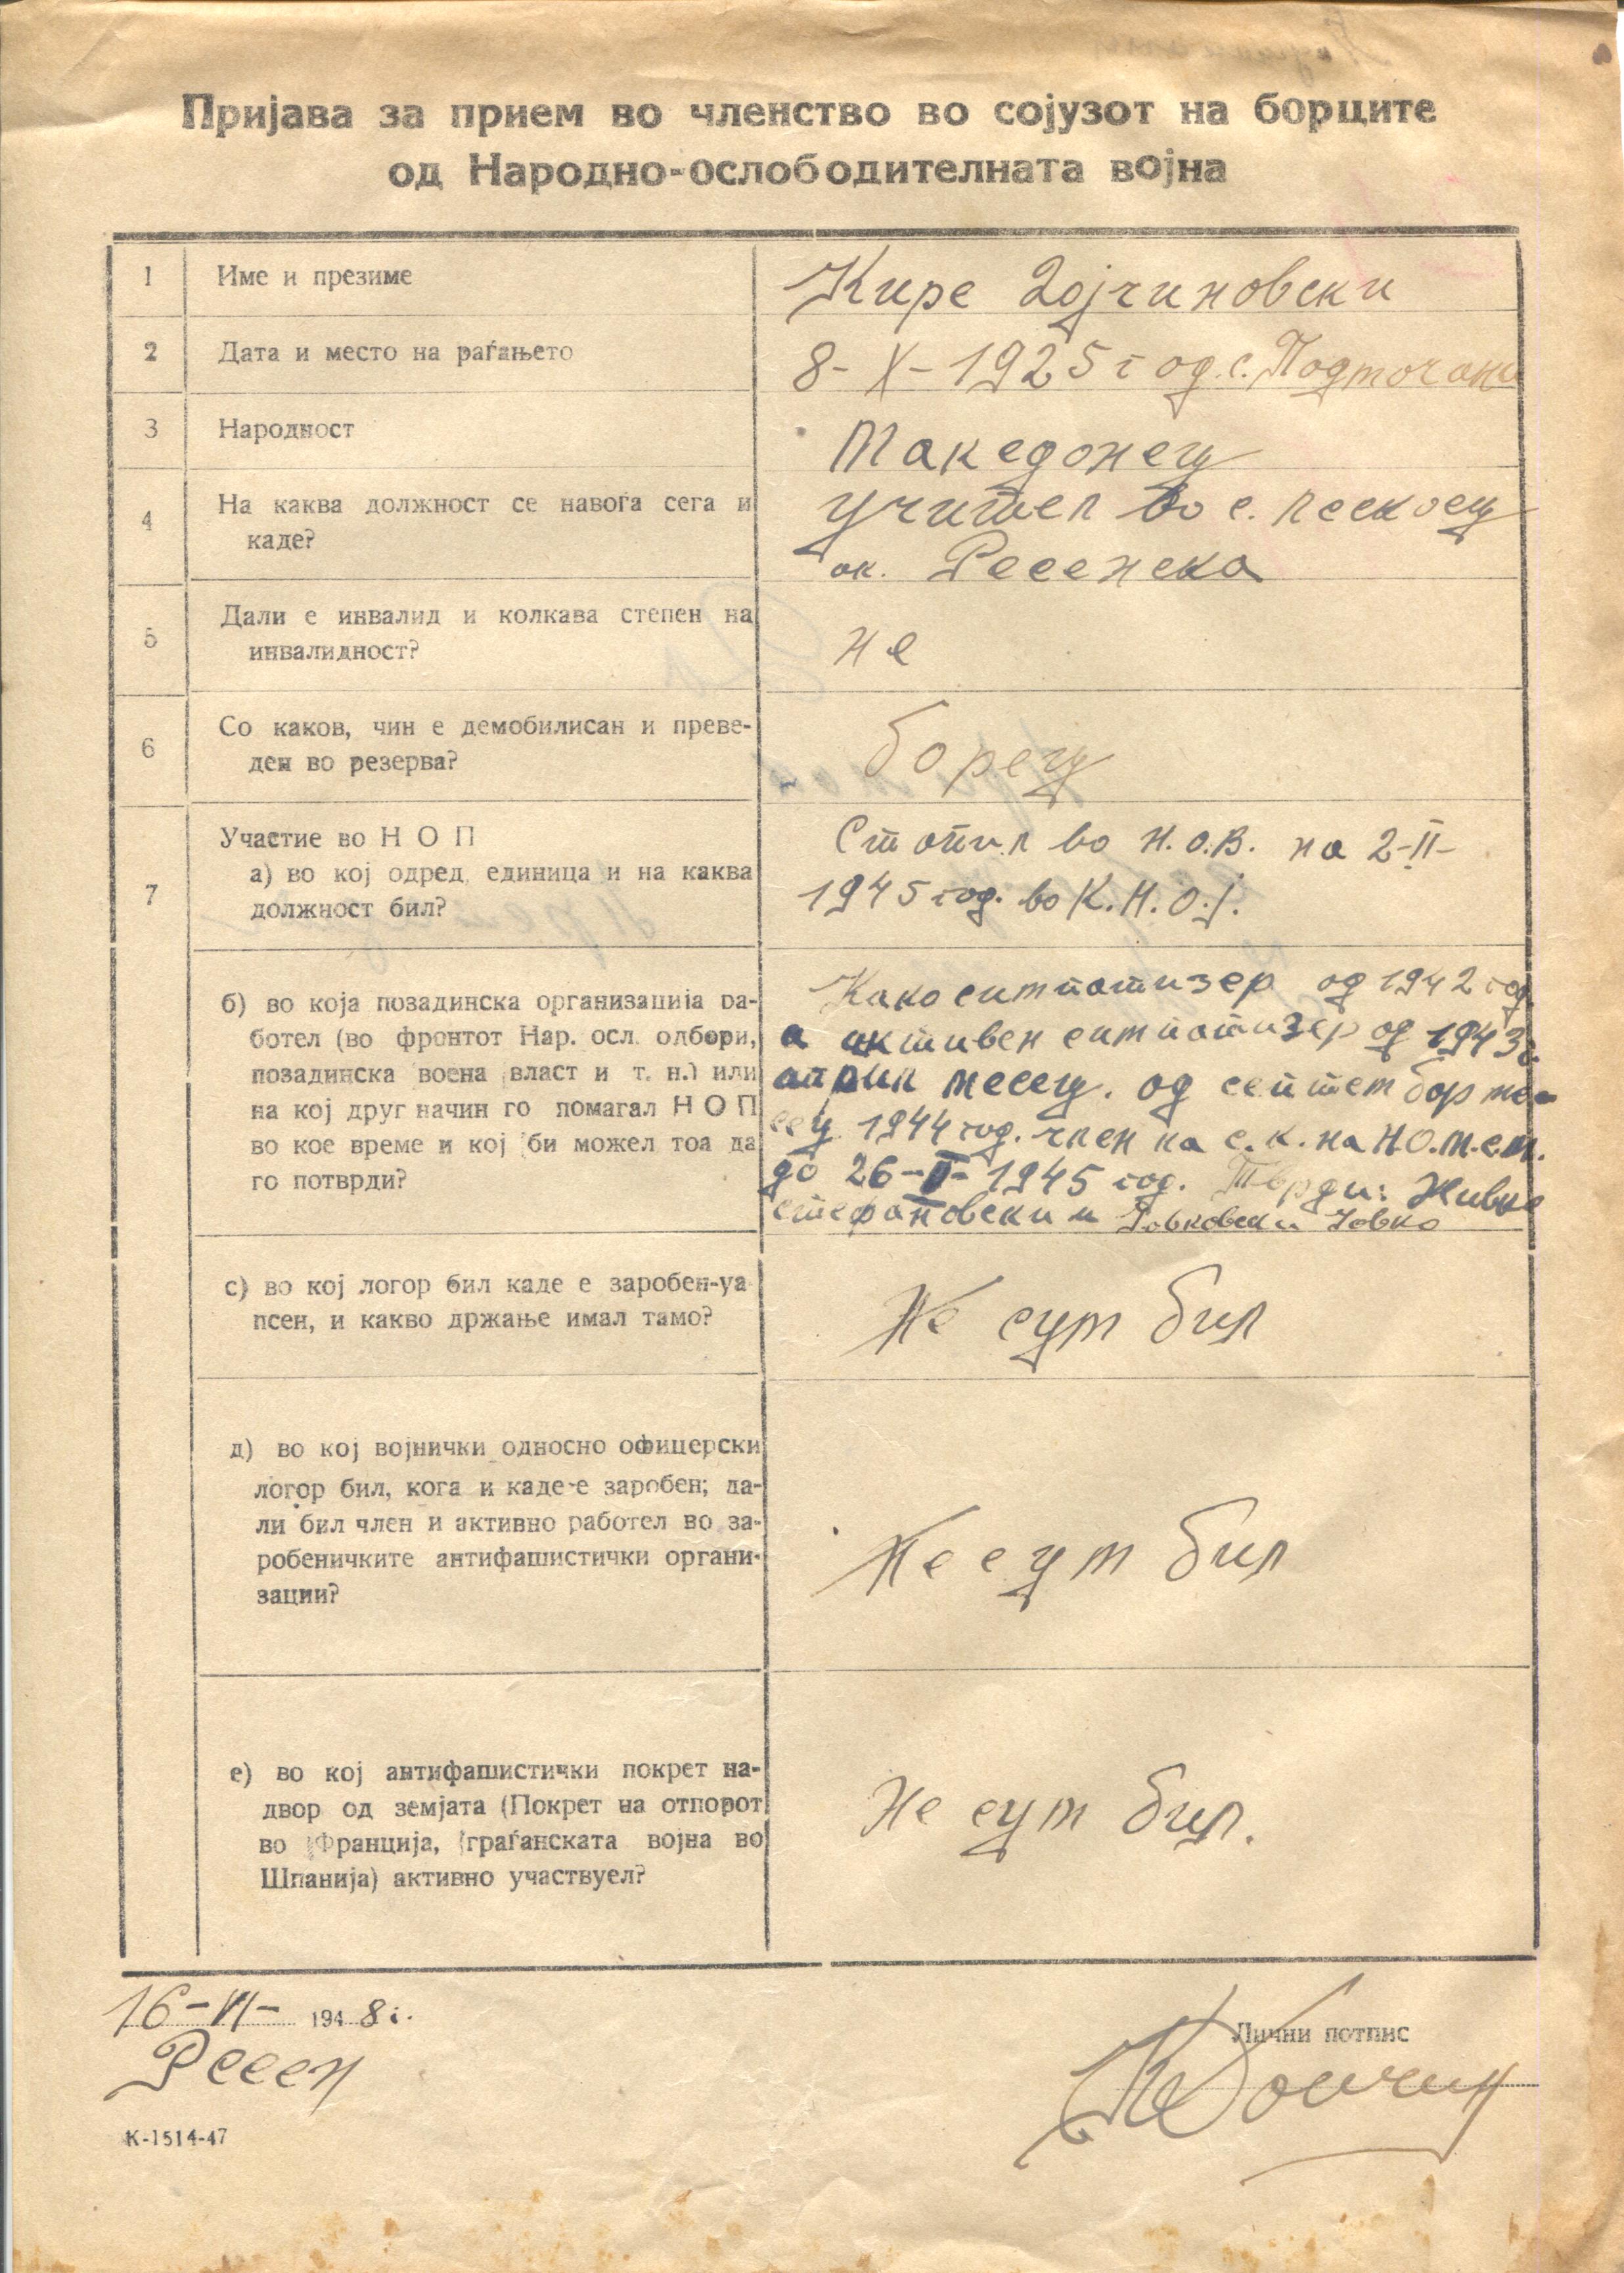 Пријава за прием во членство во сојузот на борците
од Народно-ослободителната војна
1 Име и презиме Кире Дојчиновски
2 Дата и место на раѓањето 8-X-1925 год. с. Подмочани
3 Народност Македонец
4 На каква должност се навоѓа сега и
каде?
учител во с. Лескоец
ок. Ресенска
5 Дали е инвалид и колкава степен на
инвалидност?
не
6 Со каков, чин е демобилисан и преве-
ден во резерва?
борец
7 Участие во Н О П
а) во кој одред, единица и на каква
должност бил?
Стапил во Н.О.В. на 2-II-
1945 год. во К.Н.О.Ј.
б) во која позадинска организација ра-
ботел (во фронтот Нар. осл. одбори,
позадинска воена власт и т. н.) или
на кој друг начин го помагал Н О П
во кое време и кој би можел тоа да
го потврди?
Како симпатизер од 1942 год
а активен симпатизер од 1943 г.
април месец. од септембар ме-
сец 1944 год. член на с.к. на Н.О.М.С.М.
до 26-II-1945 год. Тврди: Живко
Стефановски и Јовко
с) во кој логор бил каде е заробен-уа
псен, и какво држање имал тамо?
Не сум бил
д) во кој војнички односно офицерски
логор бил, кога и каде-е заробен; да-
ли бил член и активно работел во за-
робеничките антифашистички органи-
зации?
Не сум бил
е) во кој антифашистички покрет на-
двор од земјата (Покрет на отпорот
во Франција, граѓанската војна во
Шпанија) активно участвуел?
Не сум бил.
16-VI- 1948 г.
Ресен
Лични потпис
К-1514-47